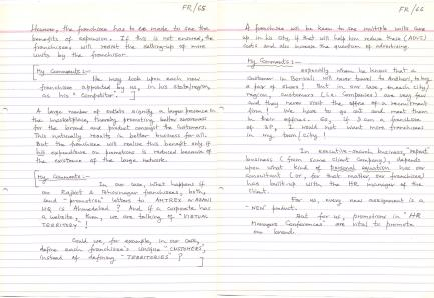 FR/65
However, the franchisee has to be made to see the
benefits of expansion. If this is not ensured, the
franchisees will resist the setting-up of more
units by the franchisor.
My Comments:-
He may look upon each new
franchisee appointed by us, in his state/region
as his "Competitor".
A large number of outlets signify a larger presence in
the marketplace, thereby promoting better awareness
for the brand and product amongst the customers.
This naturally results in better business for all.
But the franchisee will realise this benefit only if
his expenditure on promotions is reduced because of
the existence of the large network.
My Comments:-
In our case, what happens if
our Rajkot & Bhavnagar franchisees, both,
send "promotion" letters to
HQ is Ahmedabad? And if a corporate has
a website, then, we are talking of "VIRTUAL
TERRITORY"!
Could we, for example, in our case,
define each franchisee's unique "CUSTOMERS",
instead of defining "TERRITORIES"?
FR/66
A franchisee will be keen to see multiple units come
up in his city, if that will help him reduce these (ADVT)
costs and also increase the quantum of advertising.
My Comments:-
especially when he knows that a
customer in Borivali will never travel to Andheri, to buy
a pair of shoes! But in our case, in each city/
region, customers (i.e. Companies) are very few
and they never visit the office of a recruitment
firm! We have to go out and meet them
in their offices. So, if I am a franchisee
of 3P, I would not want more franchisees
in my town/city!
In executive-search business, "repeat"
business (from same client Company), depends
upon what kind of personal equation has our
consultant (or, for that matter, our franchisee)
has built-up with the HR manager of the
Client.
For us, every new assignment is a
"NEW" product.
But for us, promotions in "HR
Managers Conferences" are vital to promote
our brand.